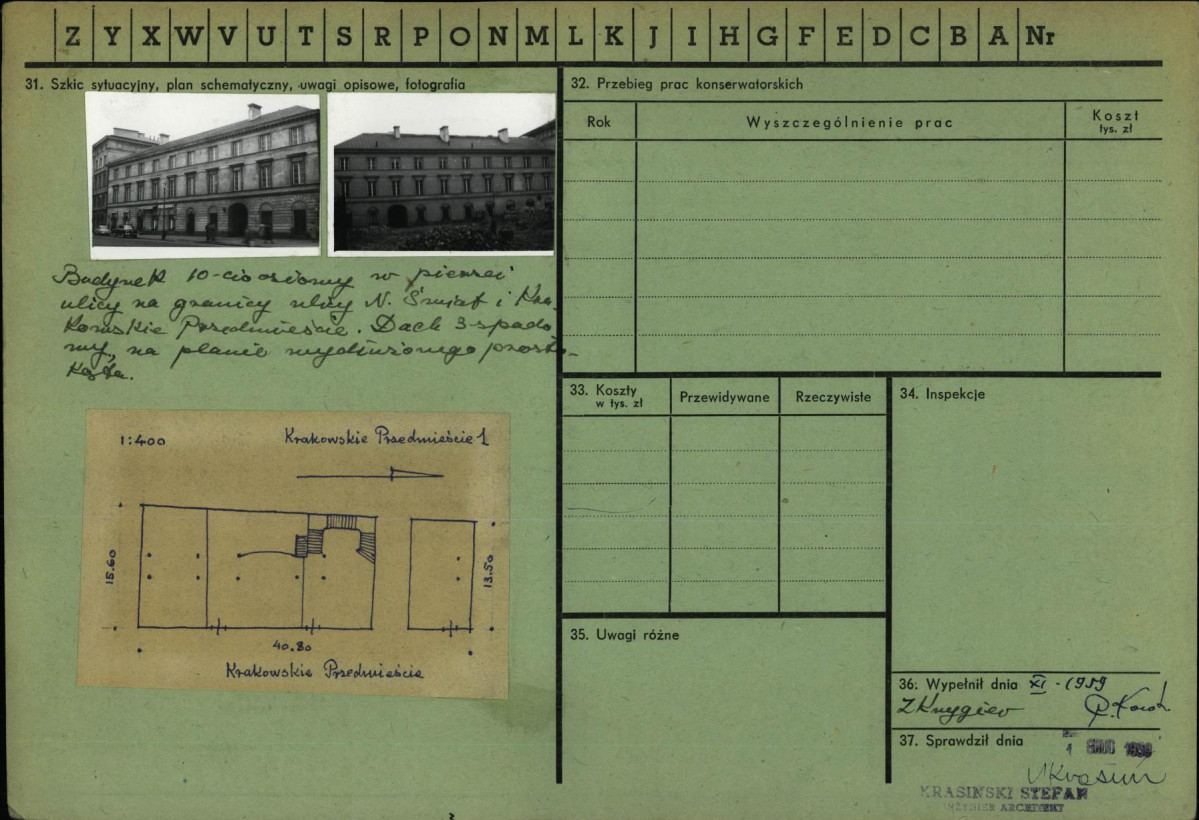 Z Y X W V U T S R P O N M L K J I H G F E D C B A Nr
31. Szkic sytuacyjny, plan schematyczny, uwagi opisowe, fotografia
Budynek 10-cio osiowy w pierzei
ulicy na granicy ulicy N. Świat i Kra-
kowskie Przedmieście. Dach 3-spado-
wy, na planie wydłużonego prosto-
kąta.
1:400
Krakowskie Przedmieście 1
15.60
13.50
40.80
Krakowskie Przedmieście
32. Przebieg prac konserwatorskich
Rok
Wyszczególnienie prac
Koszt
tys. zł
33. Koszty
w tys. zł
Przewidywane
Rzeczywiste
34. Inspekcje
35. Uwagi różne
36. Wypełnił dnia XI - 1959
37. Sprawdził dnia
KRASIŃSKI STEFAN
INŻYNIER ARCHITEKT